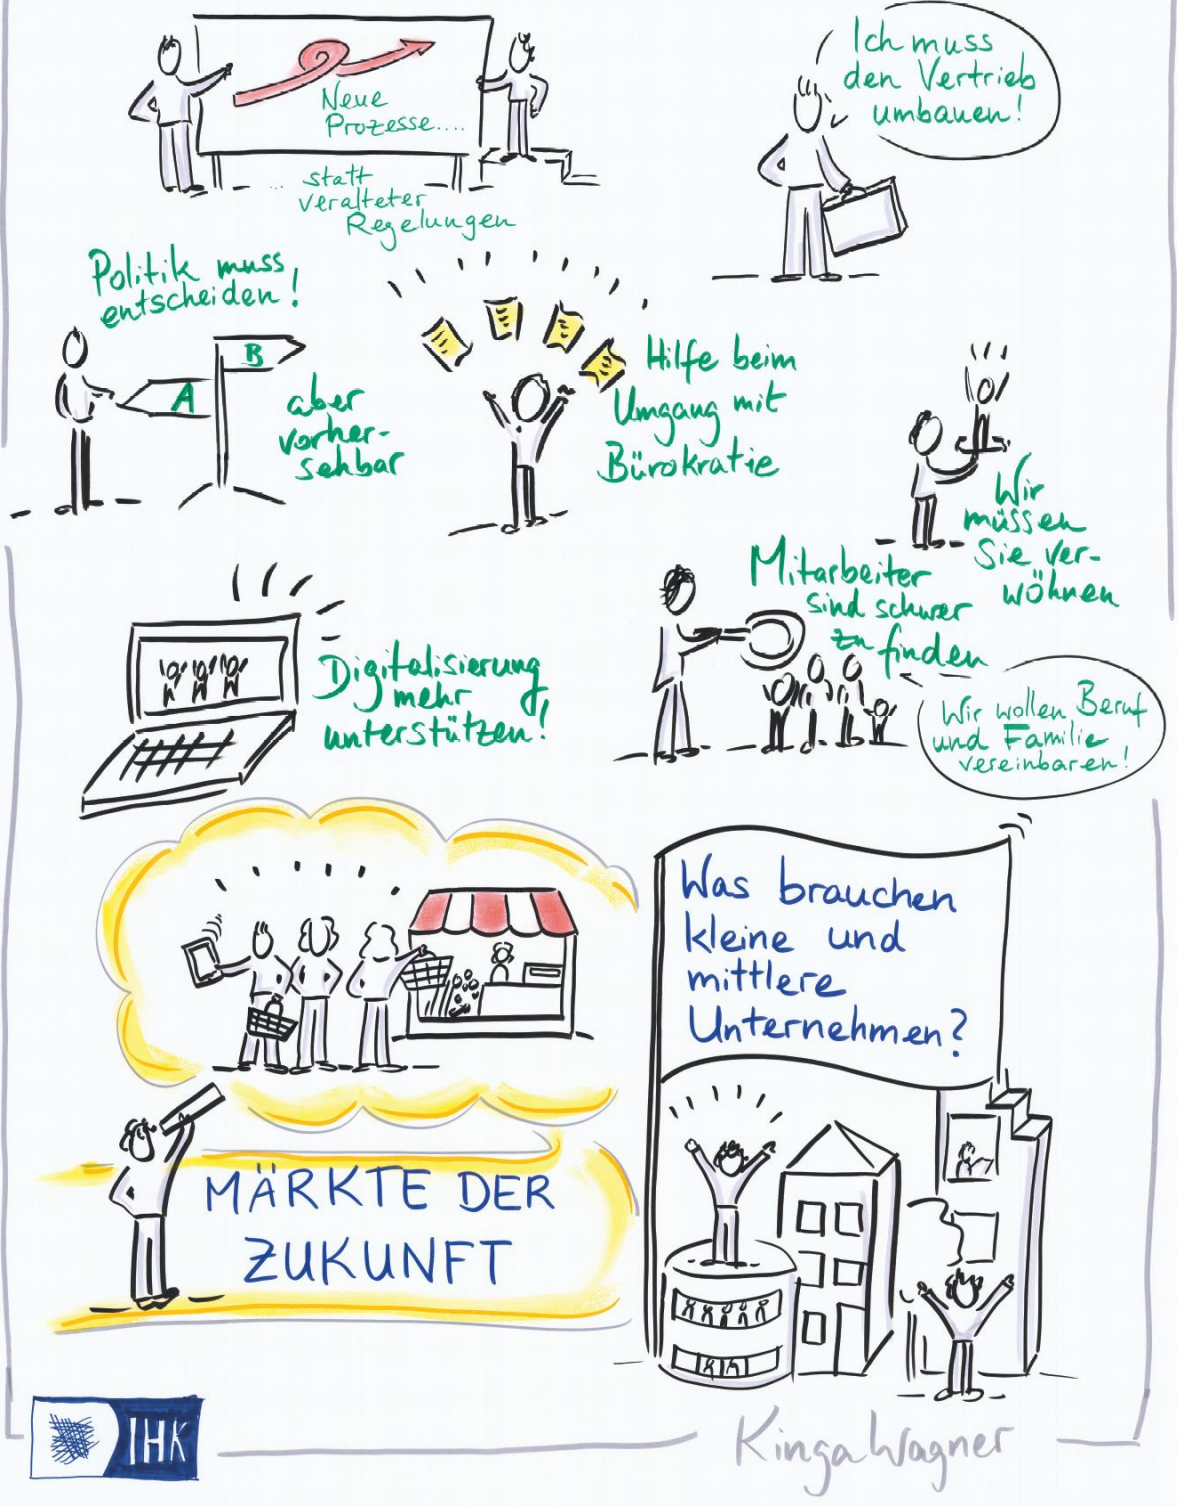 Neue
Prozesse....
... statt
veralteter
Regelungen
Ich muss
den Vertrieb
umbauen!
Politik muss
entscheiden!
B
A
aber
vorher-
sehbar
Hilfe beim
Umgang mit
Bürokratie
Wir
müssen
Sie ver-
wöhnen
Mitarbeiter
sind schwer
zu finden
Wir wollen Beruf
und Familie
vereinbaren!
Digitalisierung
mehr
unterstützen!
Was brauchen
kleine und
mittlere
Unternehmen?
MÄRKTE DER
ZUKUNFT
IHK
Kinga Wagner